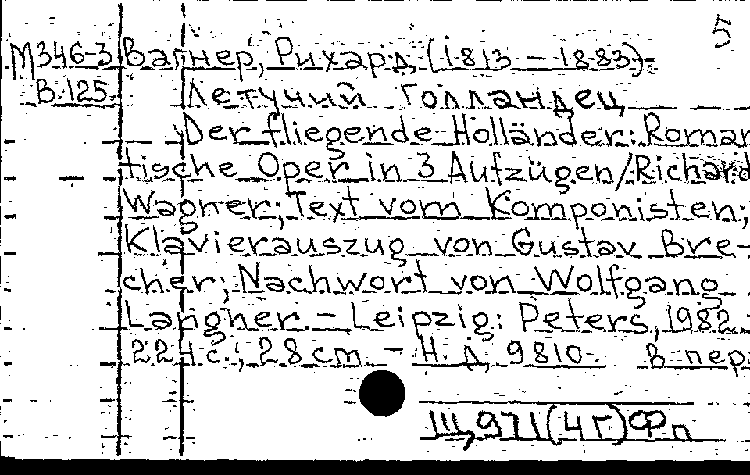 5
М346-3 Вагнер, Рихард (1813 – 1883).
В.125. Летучий голландец
Der fliegende Holländer: Roman-
tische Oper in 3 Aufzügen/Richard
Wagner; Text vom Komponisten;
Klavierauszug von Gustav Bre-
cher; Nachwort von Wolfgang
Langner. – Leipzig: Peters, 1982.
224 с.; 28 cm. – Н. д. 9810. В пер
Щ971(4Г)Фп